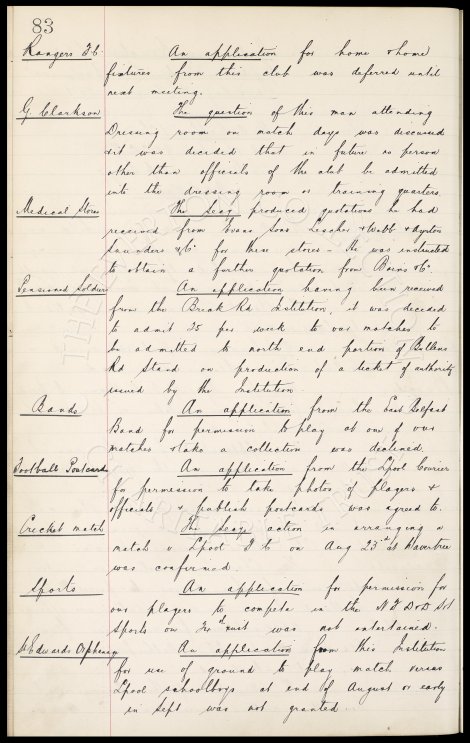 83
Rangers F.C. An application for home & home
fixtures from this club was deferred until
next meeting.
G. Clarkson The question of this man attending
Dressing room on match days was discussed
& it was decided that in future no person
other than officials of the club be admitted
into the dressing room or training quarters.
Medical Stores The Secy produced quotations he had
received from Evans Sons Lescher & Webb & Ayrton
Saunders & Co for these stores - He was instructed
to obtain a further quotation from &Co.
Pensioned Soldiers An application having been received
from the Breck Rd Institution, it was decided
to admit 25 per week to our matches to
be admitted to north end portion of Bullens
Rd Stand on production of a ticket of authority
issued by the Institution.
Bands An application from the East Belfast
Band for permission to play at one of our
matches & take a collection was declined.
Football Postcards An application from the Lpool Courier
for permission to take photos of players &
officials & publish postcards was agreed to.
Cricket match The Secys action in arranging a
match v Lpool F C on Aug 23rd at Wavertree
was confirmed.
Sports An application for permission for
our players to compete in the
Sports on inst was not entertained.
St Edwards Orphanage An application from this Institution
for use of ground to play match versus
Lpool schoolboys at end of August or early
in Sept was not granted.